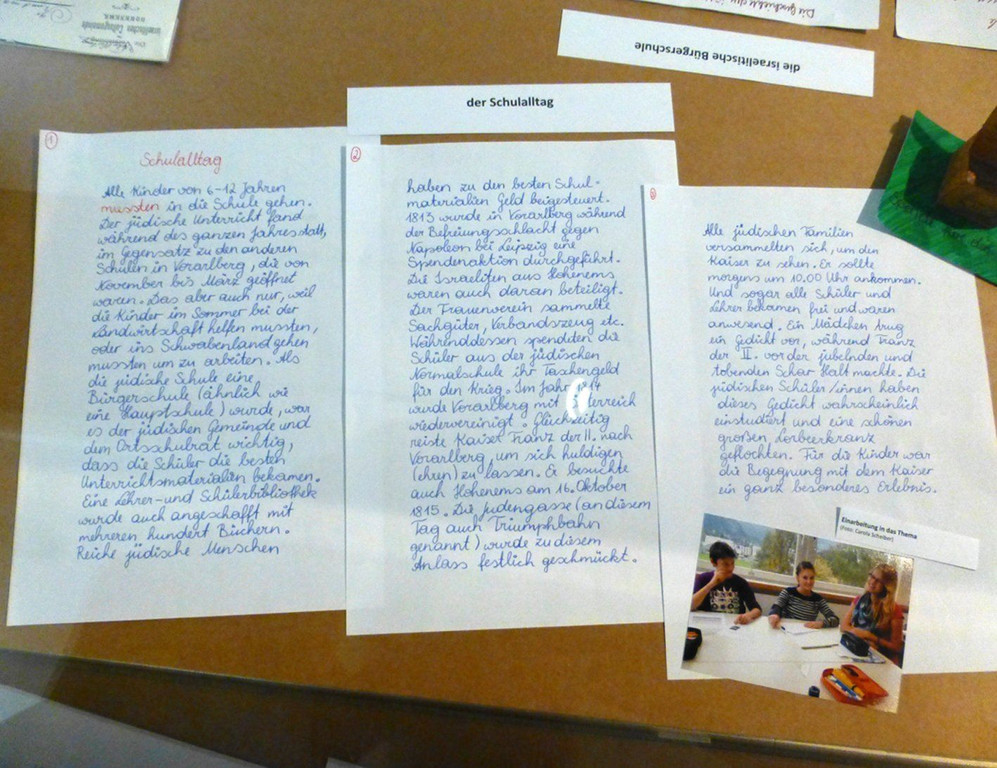 israelitischen Cultusgemeinde
HOHENEMS.
die israelitische Bürgerschule
der Schulalltag
1
Schulalltag
Alle Kinder von 6-12 Jahren
mussten in die Schule gehen.
Der jüdische Unterricht fand
während des ganzen Jahres statt,
im Gegensatz zu den anderen
Schulen in Vorarlberg, die von
November bis März geöffnet
waren. Das aber auch nur, weil
die Kinder im Sommer bei der
Landwirtschaft helfen mussten,
oder ins Schwabenland gehen
mussten um zu arbeiten. Als
die jüdische Schule eine
Bürgerschule (ähnlich wie
eine Hauptschule) wurde, war
es der jüdischen Gemeinde und
dem Ortsschulrat wichtig,
dass die Schüler die besten
Unterrichtsmaterialien bekamen.
Eine Lehrer- und Schülerbibliothek
wurde auch angeschafft mit
mehreren hundert Büchern.
Reiche jüdische Menschen
2
haben zu den besten Schul-
materialien Geld beigesteuert.
1813 wurde in Vorarlberg während
der Befreiungsschlacht gegen
Napoleon bei Leipzig eine
Spendenaktion durchgeführt.
Die Israeliten aus Hohenems
waren auch daran beteiligt.
Der Frauenverein sammelte
Sachgüter, Verbandszeug etc.
Währenddessen spendeten die
Schüler aus der jüdischen
Normalschule ihr Taschengeld
für den Krieg. Im Jahr
wurde Vorarlberg mit
wiedervereinigt. Gleichzeitig
reiste Kaiser Franz der II. nach
Vorarlberg, um sich huldigen
(ehren) zu lassen. Er besuchte
auch Hohenems am 16. Oktober
1815. Die Judengasse (an diesem
Tag auch Triumphbahn
genannt) wurde zu diesem
Anlass festlich geschmückt.
3
Alle jüdischen Familien
versammelten sich, um den
Kaiser zu sehen. Er sollte
morgens um 10.00 Uhr ankommen.
Und sogar alle Schüler und
Lehrer bekamen frei und waren
anwesend. Ein Mädchen trug
ein Gedicht vor, während Franz
der II. vor der jubelnden und
tobenden Schar Halt machte. Die
jüdischen Schüler/innen haben
dieses Gedicht wahrscheinlich
einstudiert und eine schönen
großen Lorbeerkranz
geflochten. Für die Kinder war
die Begegnung mit dem Kaiser
ein ganz besonderes Erlebnis.
Einarbeitung in das Thema
(Foto: Carola Scheiber)